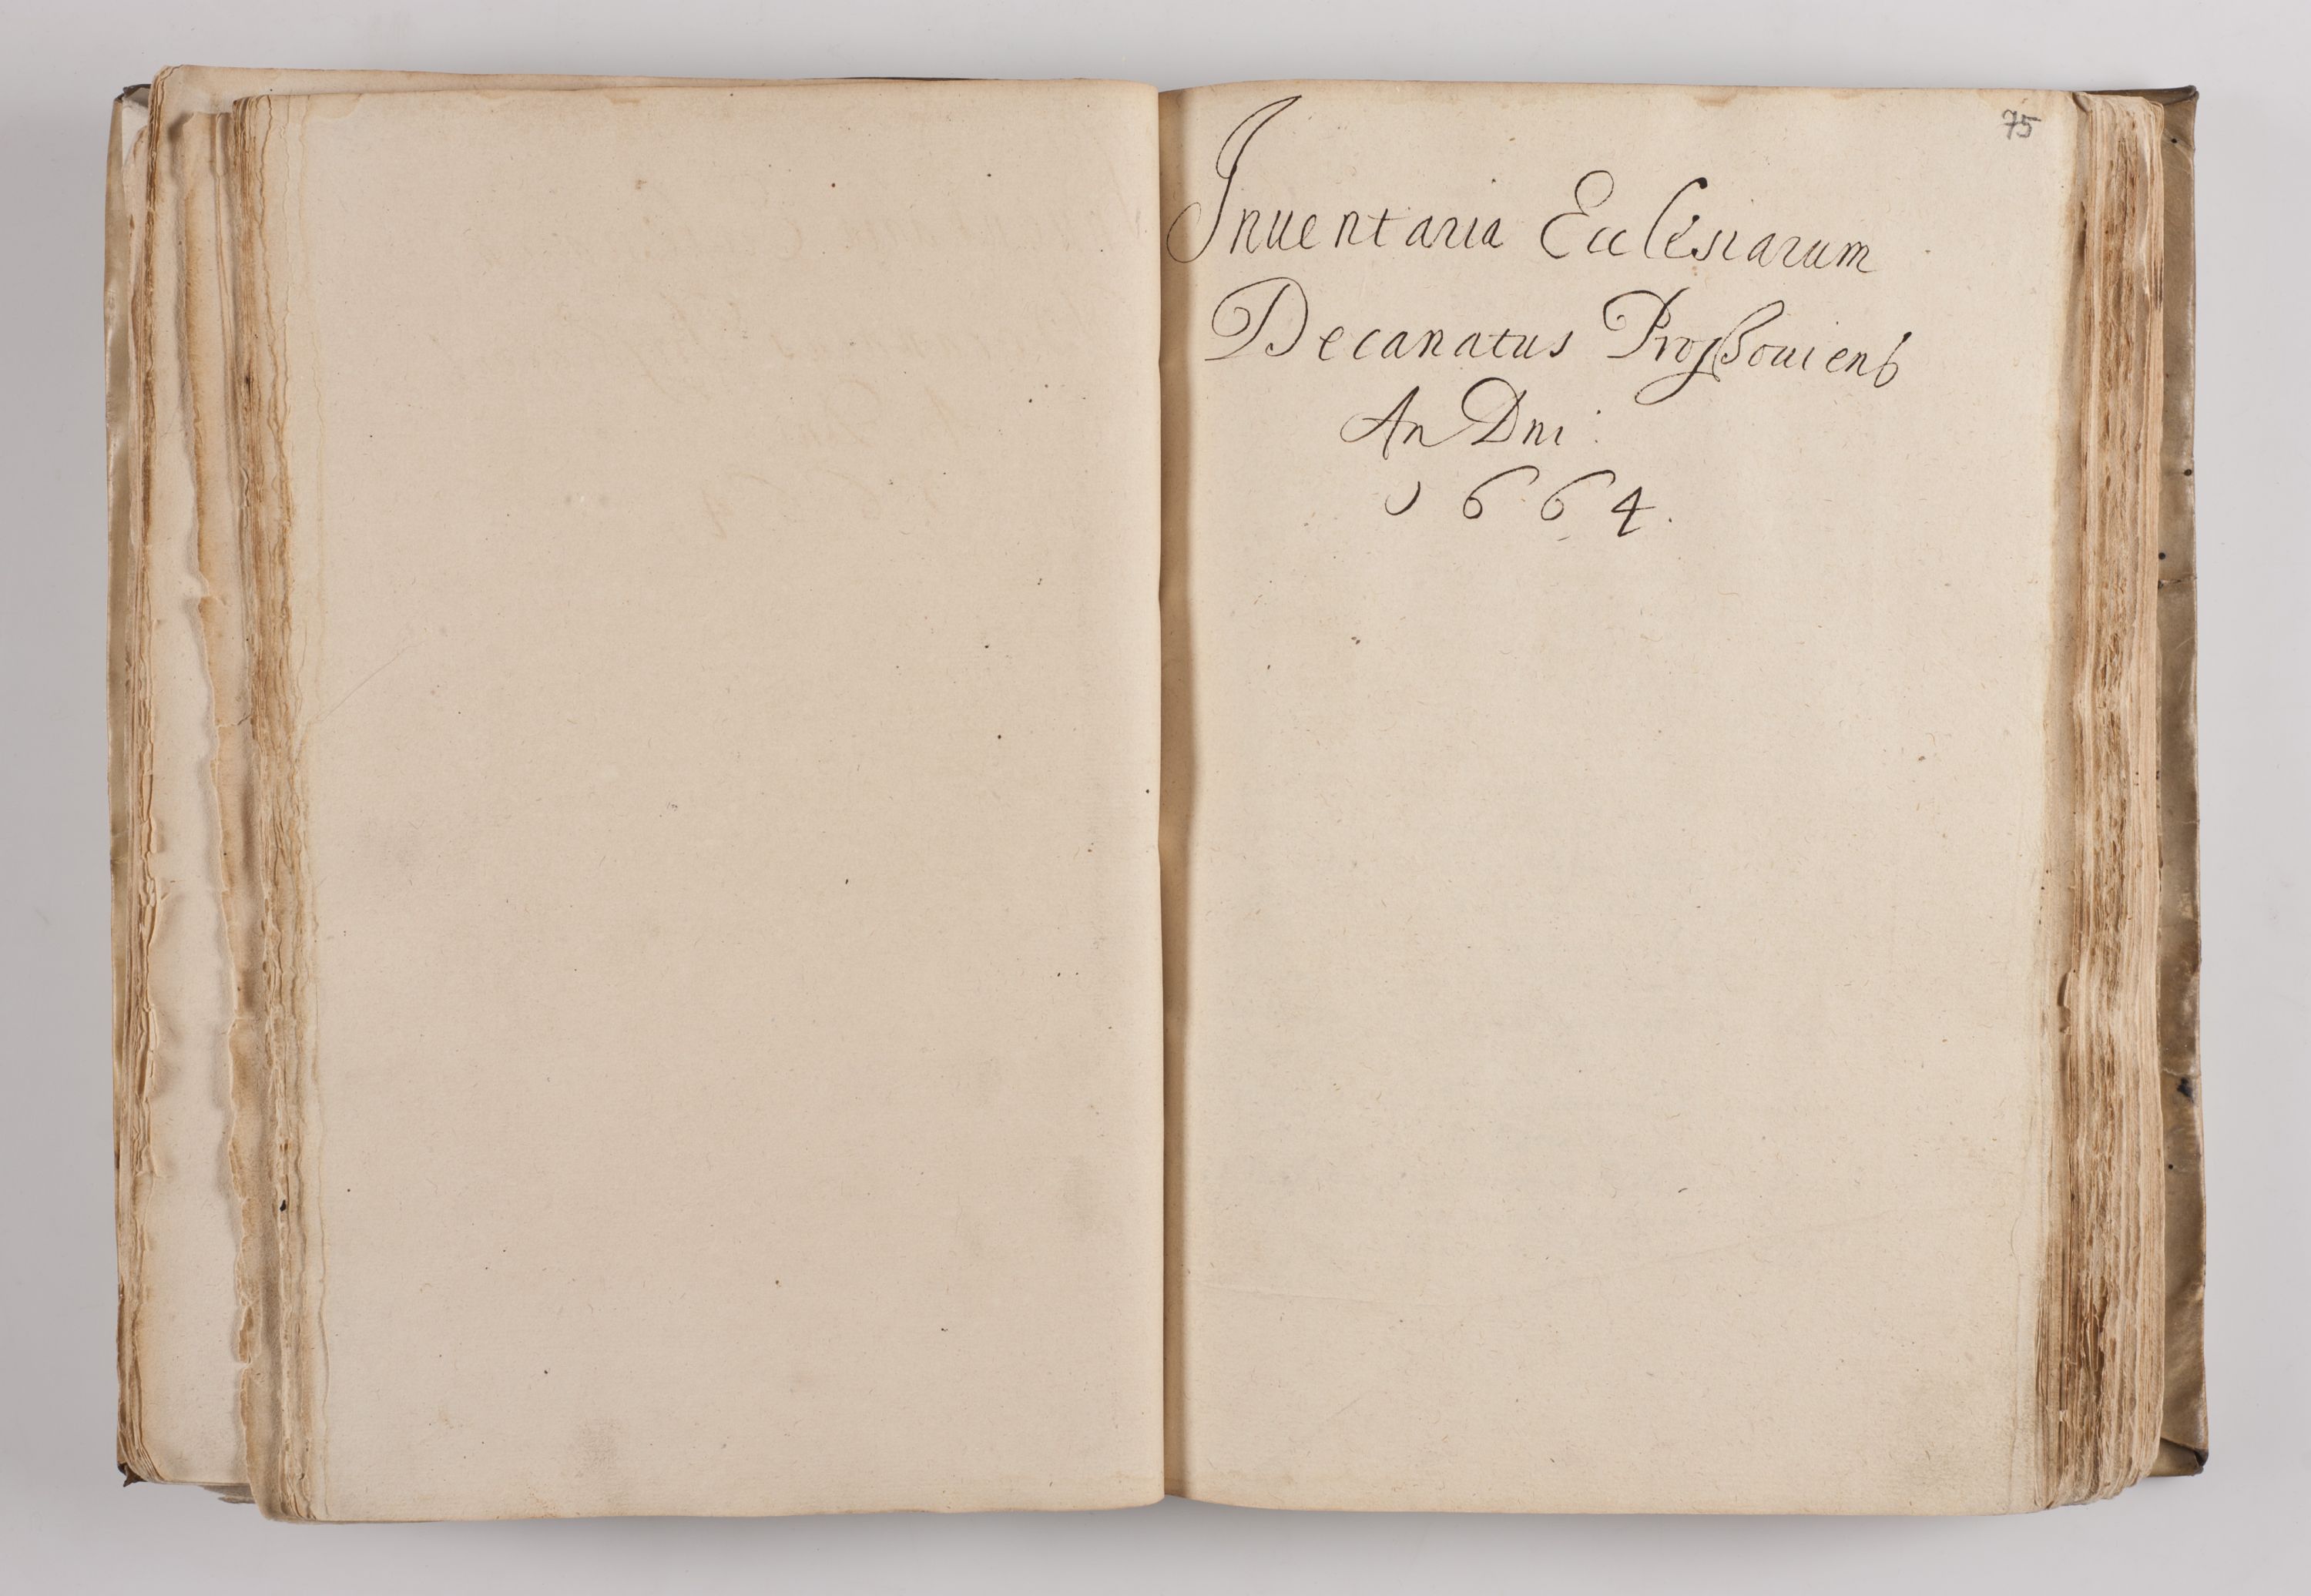 75
Inuentaria Ecclesiarum
Decanatus Proſſouiens
An Dni :
1664.